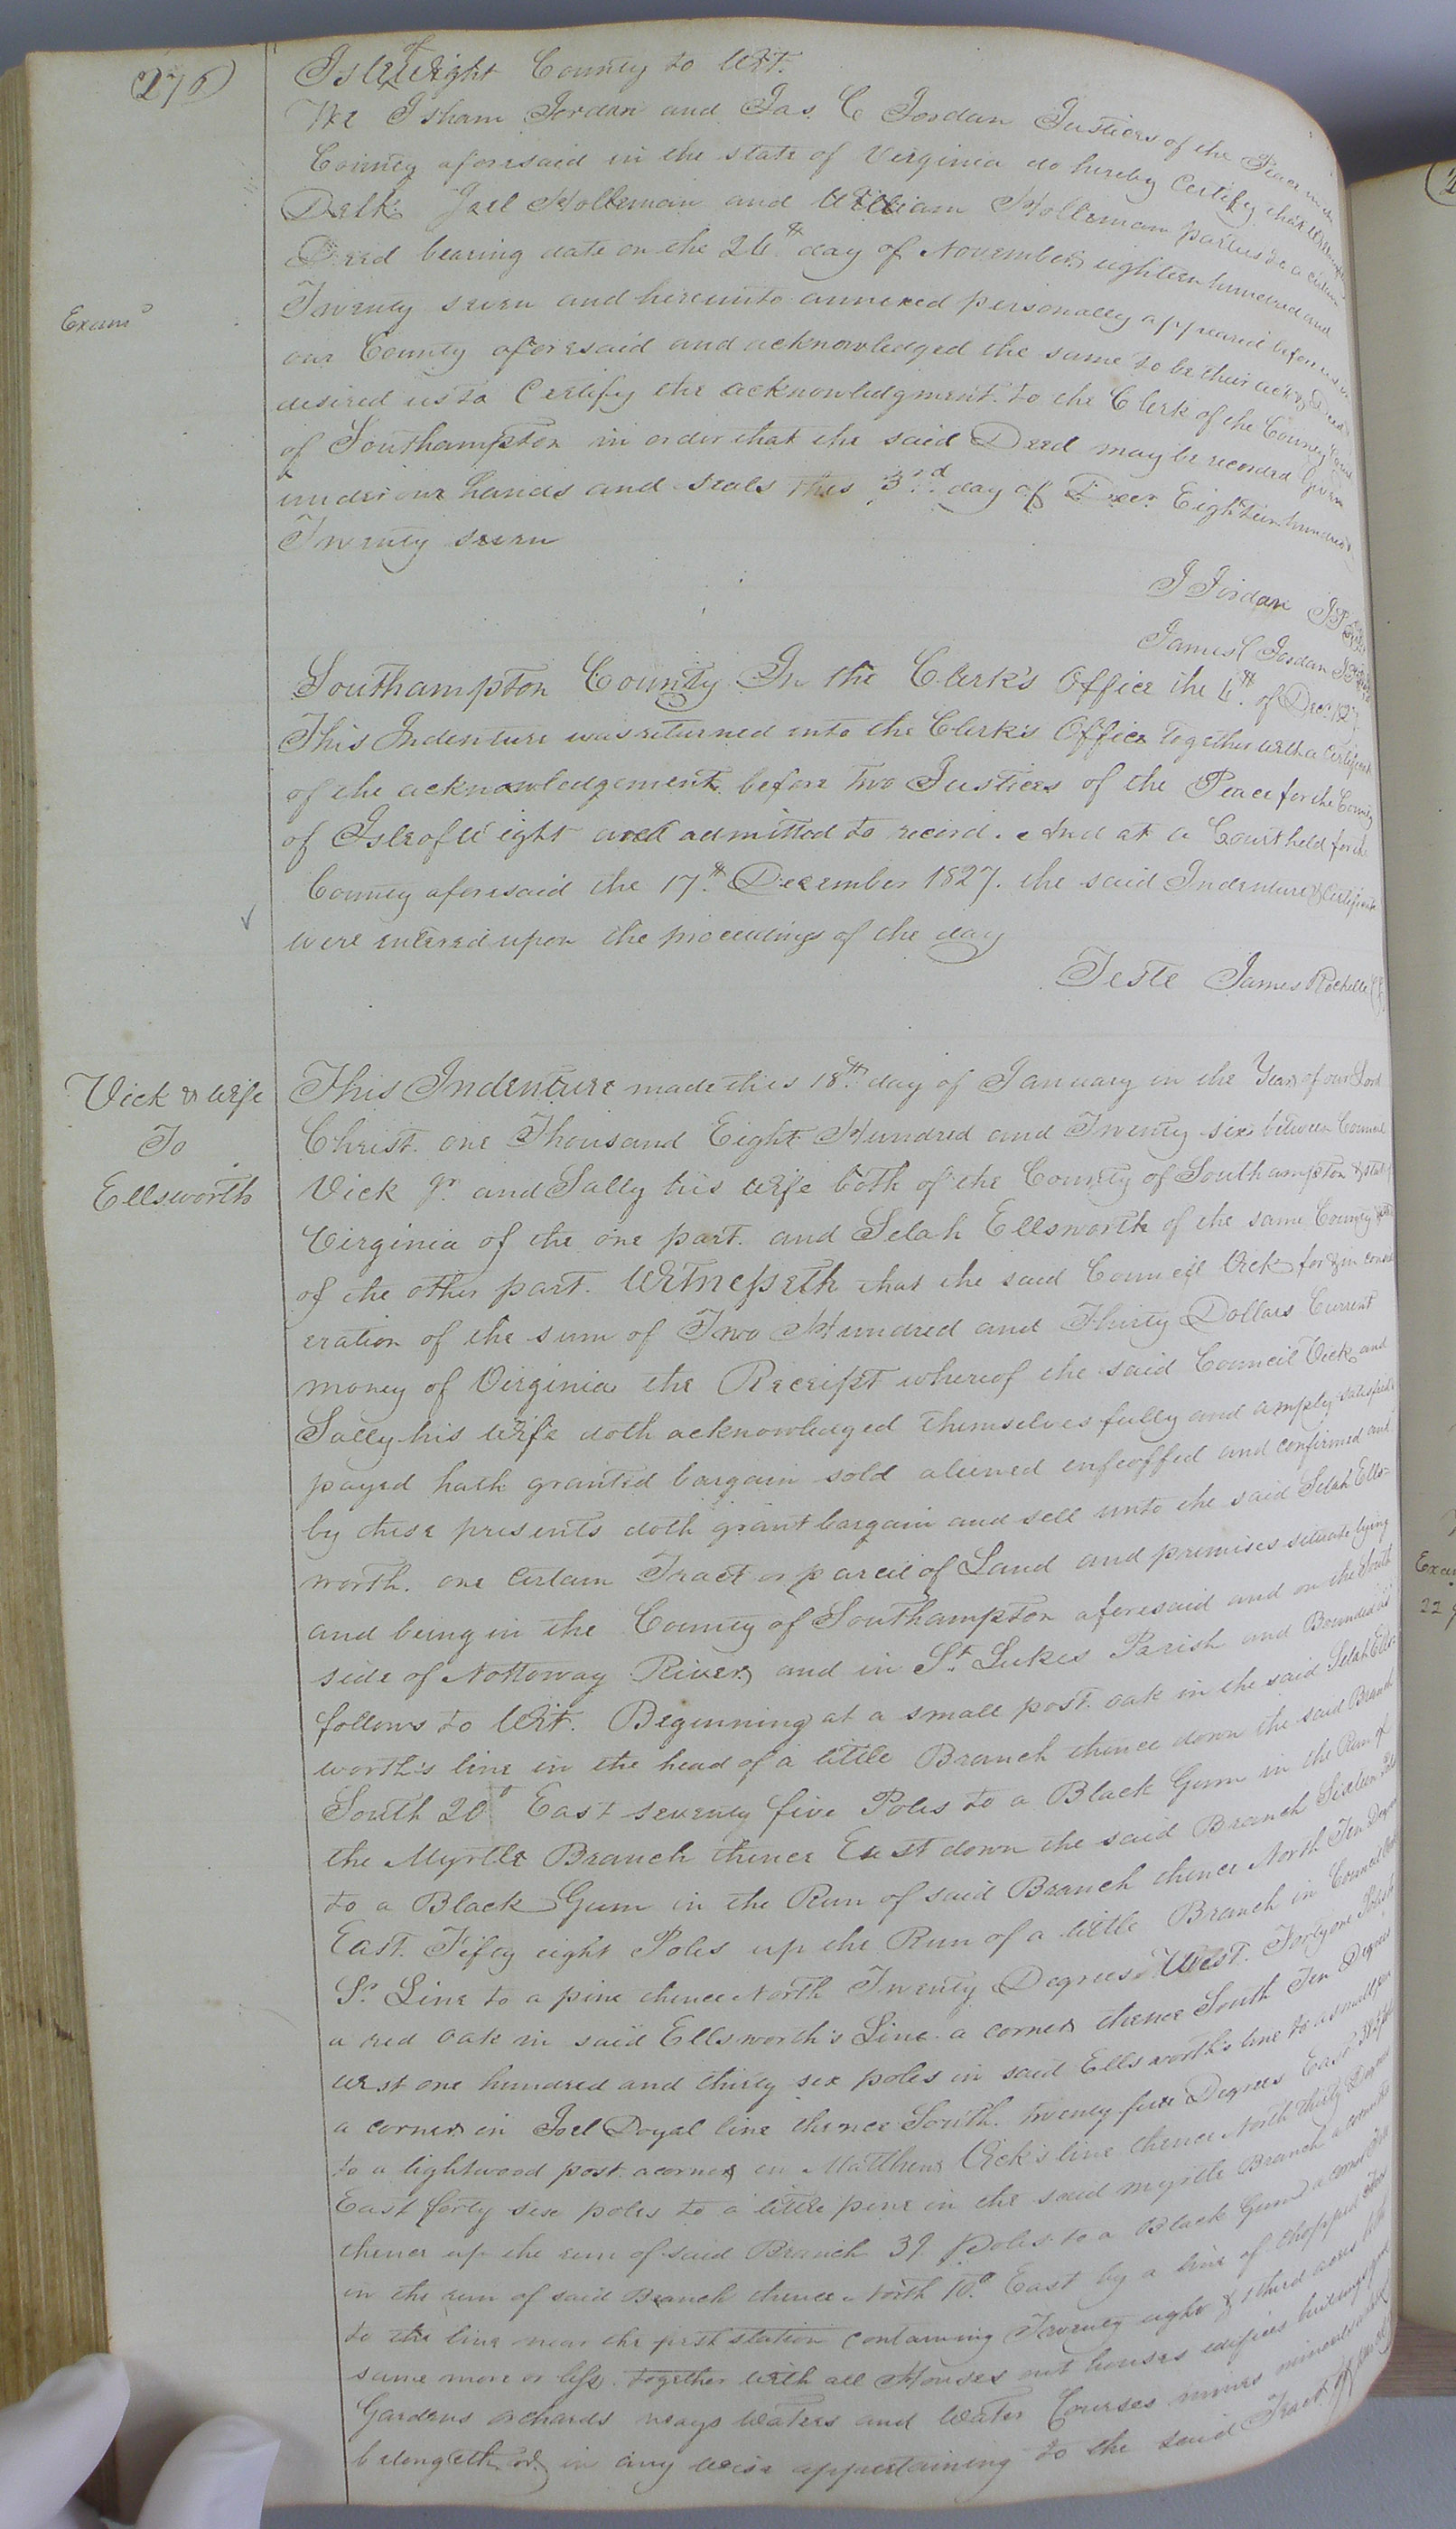 276
Isle of Wight County to Wit.
We Isham Jordan and Jas. C Jordan Justices of the Peace
County aforesaid in the state of Virginia do hereby Certify that
Delk Joel Holleman and William Holleman parties to a certain
Deed bearing date on the 26th day of November eighteen hundred and
Exam'd
Twenty seven and hereunto annexed personally appeared before us in
our County aforesaid and acknowledged the same to be their act & Deed
desired us to Certify the acknowledgment to the Clerk of the County Court
of Southampton in order that the said Deed may be recorded Given
under our hands and seals this 3rd day of Decr Eighteen hundred
Twenty seven
J Jordan JP
James C Jordan
Southampton County In the Clerk's Office the 4th of Decr 1827
This Indenture was returned into the Clerk's Office together with a Certificate
of the acknowledgement before two Justices of the Peace for the County
of Isle of Wight and admitted to record. And at a Court held for the
County aforesaid the 17th December 1827. the said Indenture & Certificate
were entered upon the proceedings of the day
Teste James Rochelle
Vick & wife
To
Ellsworth
This Indenture made this 18th day of January in the Year of our Lord
Christ. one Thousand Eight Hundred and Twenty six between Council
Vick Jr and Sally his wife both of the County of Southampton & state of
Virginia of the one part. and Selah Ellsworth of the same County
of the other part. Witnesseth that the said Council Vick for & in consid
eration of the sum of Two Hundred and Thirty Dollars Current
money of Virginia the Receipt whereof the said Council Vick and
Sally his wife doth acknowledged themselves fully and amply satisfied
payed hath granted bargain sold aliened enfeoffed and confirmed and
by these presents doth grant bargain and sell unto the said Selah Ells-
worth. one certain Tract or parcel of Land and premises situate lying
and being in the County of Southampton aforesaid and on the South
side of Nottoway River and in St. Lukes Parish and Bounded as
follows to Wit. Beginning at a small post oak in the said Selah Ells-
worth's line in the head of a little Branch thence down the said Branch
South 20° East seventy five Poles to a Black Gum in the Run of
the Myrtle Branch thence East down the said Branch Sixteen Poles
to a Black Gum in the Run of said Branch thence North Ten Degrees
East. Fifty eight Poles up the Run of a little Branch in Council Vick
Sr. Line to a pine thence North Twenty Degrees West. Forty one Poles
a red oak in said Ellsworth's Line a corner thence South Ten Degrees
west one hundred and thirty six poles in said Ellsworth's line to a small
a corner in Joel Doyal line thence South. twenty five Degrees East
to a lightwood post a corner in Matthew Vick's line thence North thirty Degrees
East forty six poles to a little pine in the said myrtle Branch a corner
thence up the run of said Branch 39 Poles to a Black Gum a corner
in the run of said Branch thence North 10° East by a line of chopped trees
to the line near the first station containing Twenty eight & 1 third acres
same more or less. together with all Houses out houses edifices buildings
Gardens orchards ways waters and water Courses mines minerals
belongeth or in any wise appertaining to the said Tract